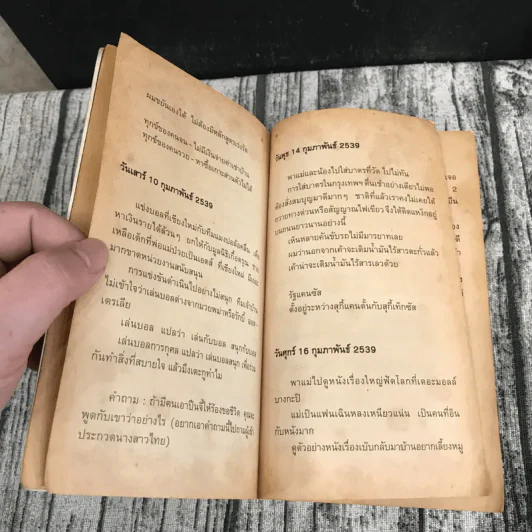 ผมขยันเองได้ ไม่ต้องมีหลักสูตรเร่งรัด
ทุกข์ของคนจน - ไม่มีเงินจ่ายค่าเช่าบ้าน
ทุกข์ของคนรวย - หาซื้อเกาะส่วนตัวไม่ได้
วันเสาร์ 10 กุมภาพันธ์ 2539
แข่งบอลที่เชียงใหม่กับทีมแมงปอล้อคลื่น เพื่อ
หาเงินรายได้ล้วนๆ ยกให้กับมูลนิธิเกื้อดรุณ ช่วย
เหลือเด็กที่พ่อแม่ป่วยเป็นเอดส์ ที่เชียงใหม่
มากขาดหน่วยงานสนับสนุน
การแข่งขันดำเนินไปอย่างไม่สนุก ทีมเจ้าบ้าน
ไม่เข้าใจว่าเล่นบอลต่างจากมวยหมู่หรือรักบี้ ออส-
เตรเลีย
เล่นบอล แปลว่า เล่นกับบอล สนุกกับบอล
เล่นบอลการกุศล แปลว่า เล่นบอลสนุก เพื่อร่วม
กันทำสิ่งที่สบายใจ แล้วมึงเตะกูทำไม
คำถาม : ถ้ามีคนเอาปืนจี้ให้ร้องขอชีวิต คุณจะ
พูดกับเขาว่าอย่างไร (อยากเอาคำถามนี้ไปถามผู้เข้า
ประกวดนางสาวไทย)
วันพุธ 14 กุมภาพันธ์ 2539
พาแม่และน้องไปใส่บาตรที่วัด ไปไม่ทัน
การใส่บาตรในกรุงเทพฯ ตื่นเช้าอย่างเดียวไม่พอ
ต้องสั่งสมบุญมาดีมากๆ ชาติที่แล้วเราคงไม่เคยได้
ถวายทางด่วนหรือสัญญาณไฟเขียว จึงได้ติดแหง็กอยู่
บนถนนยาวนานอย่างนี้
เห็นหลายคันขับรถไม่มีมารยาทเลย
ผมว่านอกจากเค้าจะเติมน้ำมันไร้สารตะกั่วแล้ว
เค้าน่าจะเติมน้ำมันไร้สารเลวด้วย
รัฐแคนซัส
ตั้งอยู่ระหว่างสุกี้แคนตั้นกับสุกี้เท็กซัส
วันศุกร์ 16 กุมภาพันธ์ 2539
พาแม่ไปดูหนังเรื่องใหญ่ฟัดโลกที่เดอะมอลล์
บางกะปิ
แม่เป็นแฟนเฉินหลงเหนียวแน่น เป็นคนที่อิน
กับหนังมาก
ดูตัวอย่างหนังเรื่องเบ๊บกลับมาบ้านอยากเลี้ยงหมู